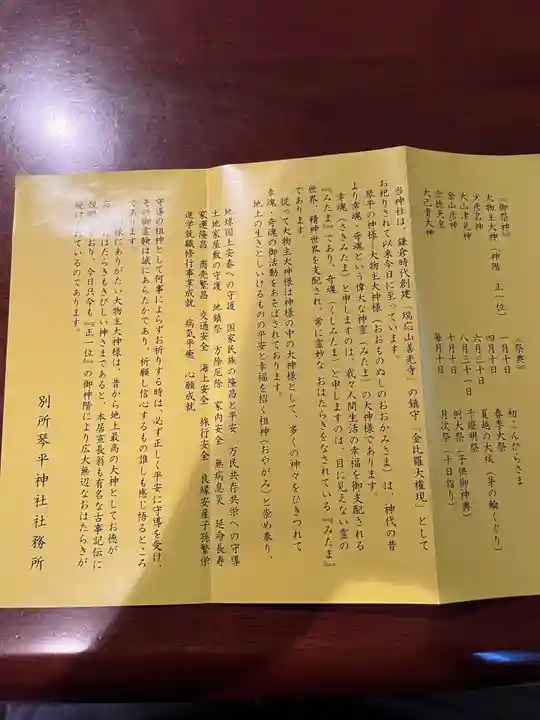 《御祭神》
大物主大神（神階　正一位）
少彦名神
大山津見神
金山彦神
崇徳天皇
大己貴大神
《祭典》
一月十日　初こんぴらさま
四月十日　春季大祭
六月三十日　夏越の大祓（茅の輪くぐり）
八月三十一日　千燈明祭
十月十日　例大祭（子供御神輿）
毎月十日　月次祭（十日詣り）
当神社は、鎌倉時代創建「瑞応山善兆寺」の鎮守「金比羅大権現」として
お祀りされて以来今日に至っています。
琴平の神様―大物主大神様（おおものぬしのおおかみさま）は、神代の昔
より幸魂・奇魂という偉大な神霊（みたま）の大神様であります。
幸魂（さきみたま）と申しますのは、我々人間生活の幸福を御支配される
『みたま』であり、奇魂（くしみたま）と申しますのは、目に見えない霊の
世界、精神世界を支配され、常に霊妙なおはたらきをなされている『みたま』
であります。
従って大物主大神様は神様の中の大神様として、多くの神々をひきつれて
幸魂・奇魂の御活動をあそばされております。
地上の生きとしいけるものの平安と幸福を招く祖神（おやがみ）と崇め奉り、
地球国土安泰への守護　国家民族の隆昌と平安　万民共存共栄への守導
土地家屋敷の守護　地鎮祭　方除厄除　家内安全　無病息災　延命長寿
家運隆昌　商売繁昌　交通安全　海上安全　旅行安全　良縁安産子孫繁栄
進学就職修行事業成就　病気平癒　心願成就
守導の祖神として何事によらずお祈りする時は、必ず正しく平安に守導を受け、
その御霊験は誠にあらたかであり、祈願し信心するもの誰しも感じ悟るところ
であります。
様にありがたい大物主大神様は、昔から地上最高の大神としてお徳が
高 はたらきもきびしい神さまであると、本居宣長翁も有名な古事記伝に
説明 おり、今日只今も『正一位』の御神階により広大無辺なおはたらきが
続け れているのであります。
別所琴平神社社務所